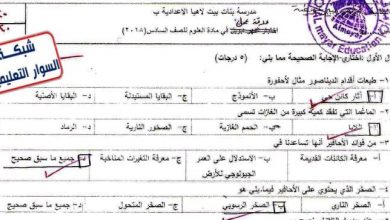 مدرسة بنات بيت لاهيا الاعدادية ب
ورقة عمل
في مادة العلوم للصف السادس (٢٠١٨)
شبكة
السوار التعليمية
Almayar Education
الأول :اختاري الإجابة الصحيحة مما يلي: (٥ درجات)
١- طبعات أقدام الديناصور مثال لأحفورة
أ- آثار كائن حي ب- الأنموذج ج- البقايا المستبدلة د- البقايا الأصلية
الماغما التي تفقد كمية كبيرة من الغازات تسمى
أ- اللابا ب- الحمم الغازية ج- الصخور النارية د- الرماد
٣- من فوائد الأحافير أنها تساعدنا في
معرفة الكائنات القديمة ب- الاستدلال على العمر الجيولوجي للأرض ج- معرفة التغيرات المناخية د- جميع ما سبق صحيح
الصخر الذي يحتوي على الأحافير فيما يلي هو
الصخر الناري ب- الصخر الرسوبي ج- الصخر المتحول د- جميع ما سبق صحيح